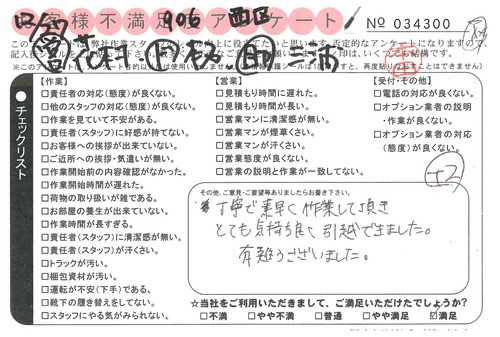 お客様不満足度アンケート
No 034300
906 西区
このアンケートは弊社作業スタッフ
否定的なアンケートになりますので
【作業】
□責任者の対応(態度)が良くない。
□他のスタッフの対応(態度)が良くない。
□作業を見ていて不安がある。
□責任者(スタッフ)に好感が持てない。
□お客様への挨拶が出来ていない。
□ご近所への挨拶・気遣いが無い。
□作業開始前の内容確認がなかった。
□作業開始時間が遅れた。
□荷物の取り扱いが雑である。
□お部屋の養生が出来ていない。
□作業時間が長すぎる。
□責任者(スタッフ)に清潔感が無い。
□責任者(スタッフ)が汗くさい。
□トラックが汚い。
□梱包資材が汚い。
□運転が不安(下手)である。
□靴下の履き替えをしてない。
□スタッフにやる気がみられない。
【営業】
□見積もり時間に遅れた。
□見積もり時間が長い。
□営業マンに清潔感が無い。
□営業マンが煙草くさい。
□営業マンが汗くさい。
□営業態度が良くない。
□営業の説明と作業が一致してない。
【受付・その他】
□電話の対応が良くない。
□オプション業者の説明
・作業が良くない。
□オプション業者の対応
(態度)が良くない。
●チェックリスト
+2
その他、ご意見・ご要望等ありましたらお書き下さい。
丁寧で素早く作業して頂き
とても気持ち良く引越できました。
有難うございました。
☆当社をご利用いただきまして、ご満足いただけたでしょうか?
□不満 □やや不満 □普通 □やや満足 ☑満足